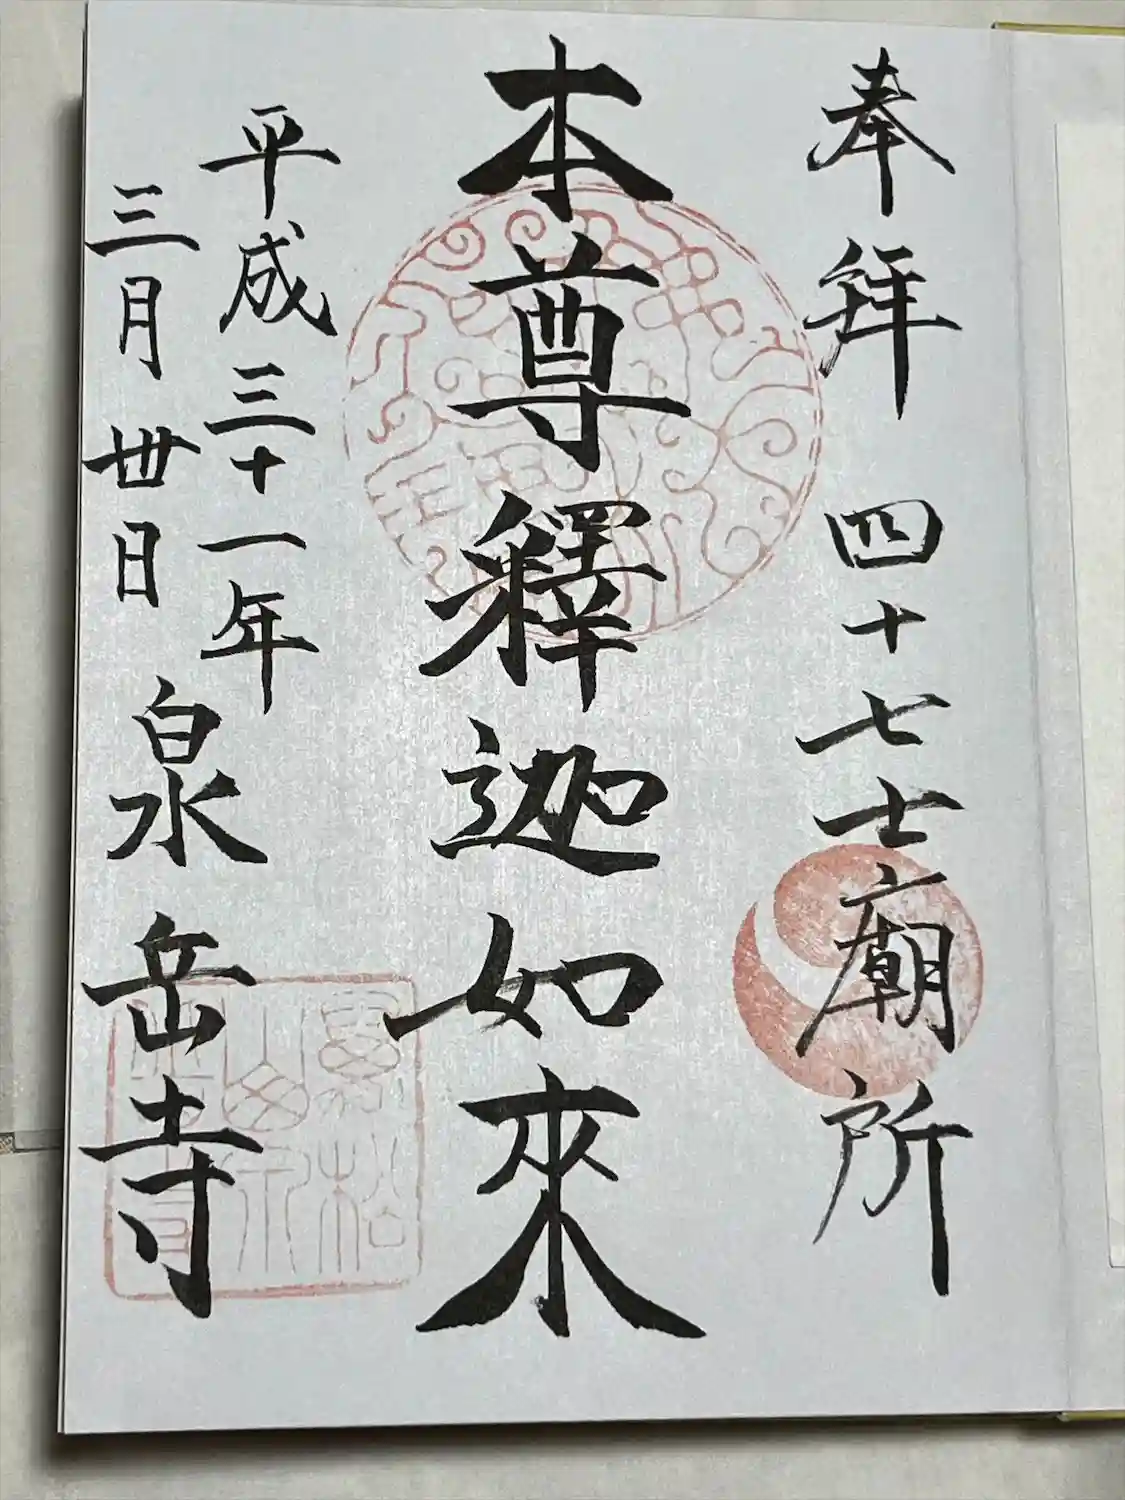 奉拜 四十七士廟所
本尊釋迦如來
平成三十一年
三月卅日 泉岳寺